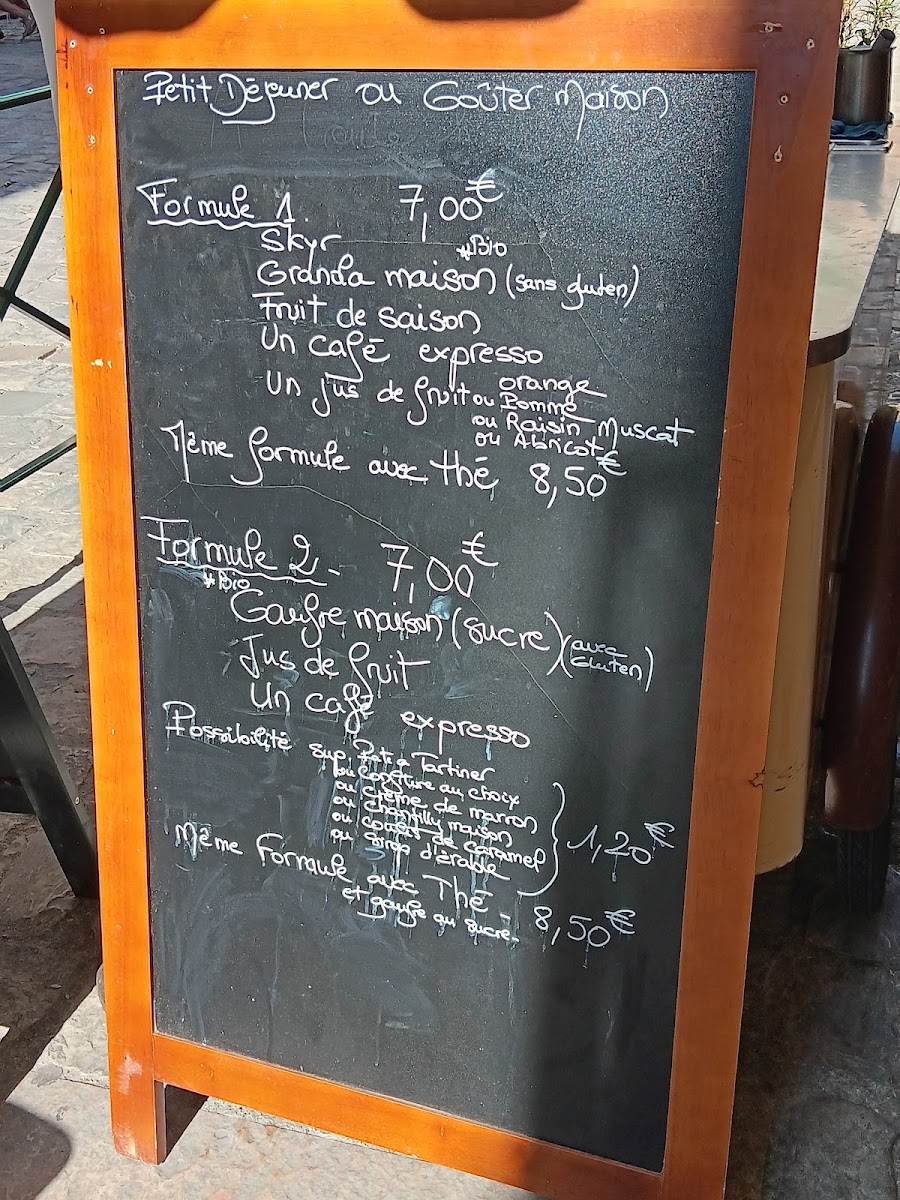 Petit Déjeuner ou Goûter Maison
Formule 1. 7,00€
Skyr
*Bio
Granola maison (sans gluten)
Fruit de saison
Un café expresso
Un jus de fruit orange
ou Pomme
ou Raisin Muscat
ou Abricot
Même formule avec thé 8,50€
Formule 2 - 7,00€
*Bio
Gaufre maison (sucre) (avec Gluten)
Jus de fruit
Un café expresso
Possibilité sup Pate a Tartiner
ou confiture au choix
ou crème de marron
ou chantilly maison
ou coulis de caramel
ou sirop d'érable
1,20€
Même Formule avec Thé - 8,50€
et gaufre au sucre-